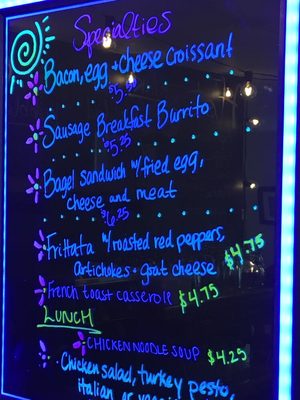 Specialties
Bacon, egg + cheese Croissant
Sausage Breakfast Burrito
$5.25
Bagel Sandwich w/ fried egg,
cheese and meat
$6.25
Frittata w/ roasted red peppers,
artichokes + goat cheese $4.75
French toast casserole $4.75
LUNCH
CHICKEN NOODLE SOUP $4.25
Chicken salad, turkey pesto,
italian or